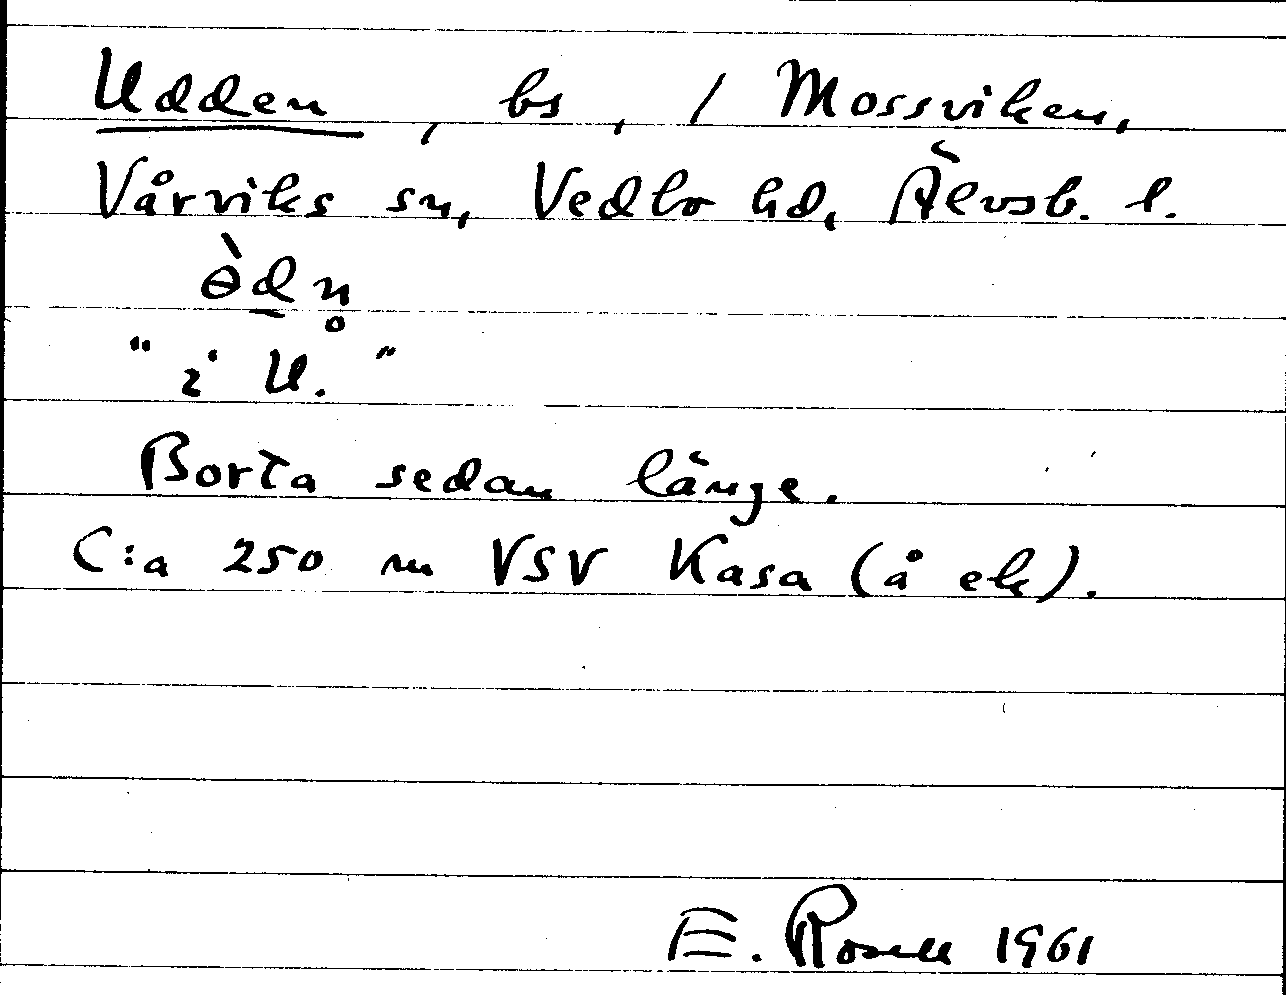 Udden, bs, / Mossviken,
Vårviks sn, Vedbo hd, Älvsb. l.
ɵ̀d̲n̥
"i U."
Borta sedan länge.
C:a 250 m VSV Kasa (å ek).
E. Rosell 1961